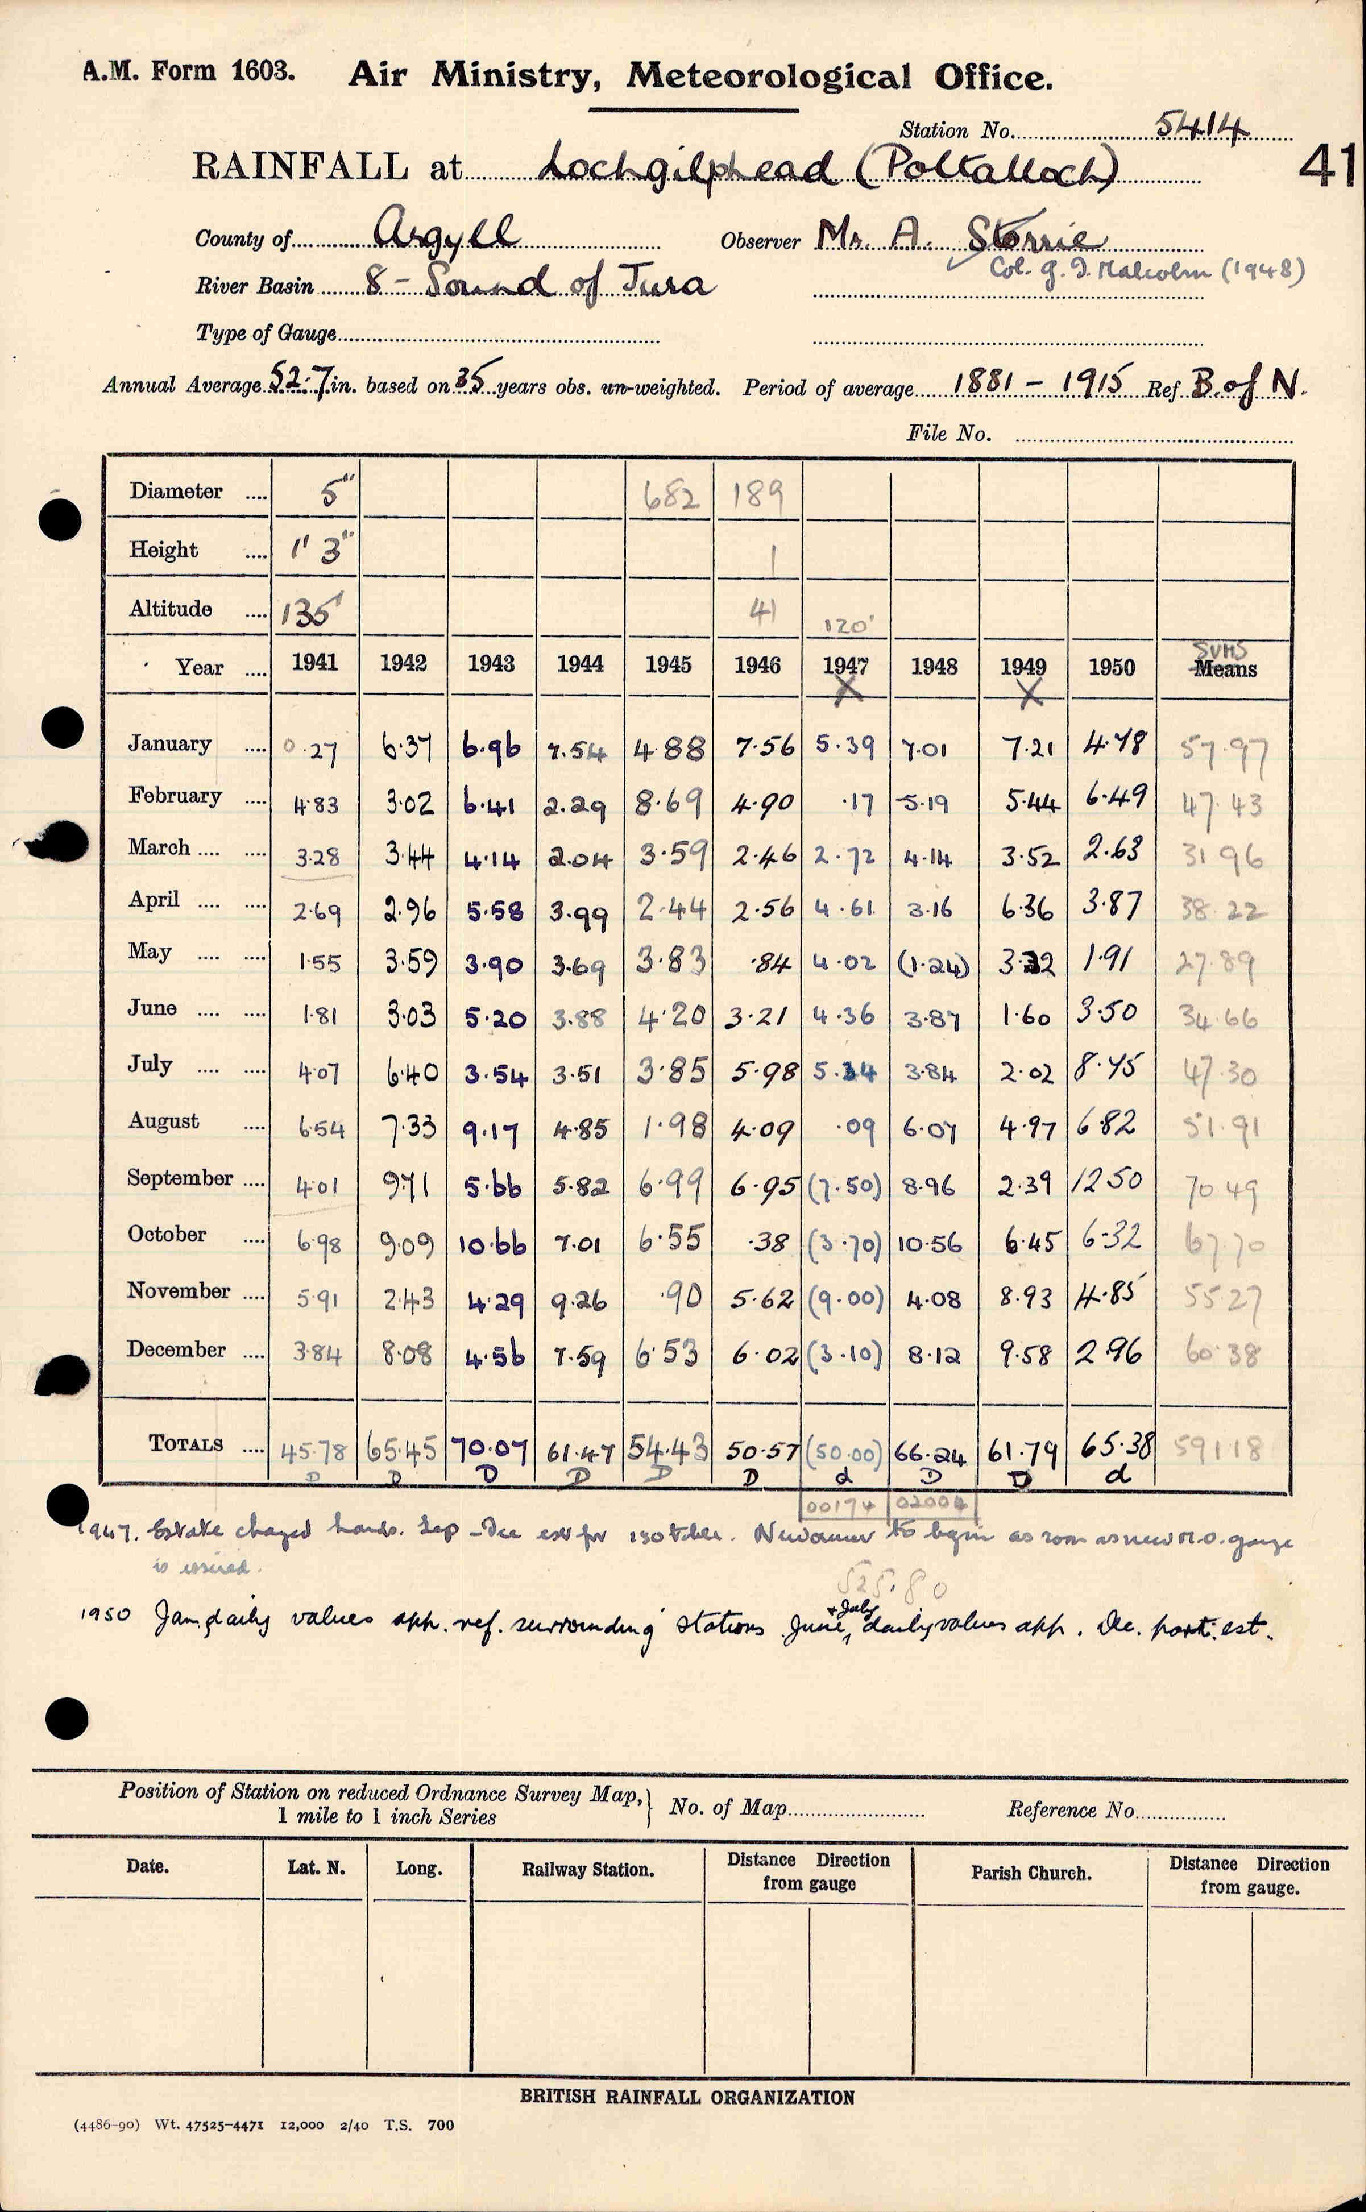 A.M. Form 1603. Air Ministry, Meteorological Office.
Station No. 5414
RAINFALL at Lochgilphead (Poltalloch) 41
County of Argyll Observer Mr. A. Storrie
Col. G. I. Malcolm (1948)
River Basin 8 - Sound of Jura
Type of Gauge
Annual Average 52.7 in. based on 35 years obs. un-weighted. Period of average 1881 - 1915 Ref. B. of N.
File No.
Diameter .... 5" 682 189
Height .... 1' 3" 1
Altitude .... 135' 41 120'
Year .... 1941 1942 1943 1944 1945 1946 1947 1948 1949 1950 SUMS Means
X X
January .... 0.27 6.37 6.96 7.54 4.88 7.56 5.39 7.01 7.21 4.78 57.97
February .... 4.83 3.02 6.41 2.29 8.69 4.90 .17 5.19 5.44 6.49 47.43
March .... .... 3.28 3.44 4.14 2.04 3.59 2.46 2.72 4.14 3.52 2.63 31.96
April .... .... 2.69 2.96 5.58 3.99 2.44 2.56 4.61 3.16 6.36 3.87 38.22
May .... .... 1.55 3.59 3.90 3.69 3.83 .84 4.02 (1.24) 3.32 1.91 27.89
June .... .... 1.81 3.03 5.20 3.88 4.20 3.21 4.36 3.87 1.60 3.50 34.66
July .... .... 4.07 6.40 3.54 3.51 3.85 5.98 5.34 3.84 2.02 8.75 47.30
August .... 6.54 7.33 9.17 4.85 1.98 4.09 .09 6.07 4.97 6.82 51.91
September .... 4.01 9.71 5.66 5.82 6.99 6.95 (7.50) 8.96 2.39 12.50 70.49
October .... 6.98 9.09 10.66 7.01 6.55 .38 (3.70) 10.56 6.45 6.32 67.70
November .... 5.91 2.43 4.29 9.26 .90 5.62 (9.00) 4.08 8.93 4.85 55.27
December .... 3.84 8.08 4.56 7.59 6.53 6.02 (3.10) 8.12 9.58 2.96 60.38
TOTALS .... 45.78 65.45 70.07 61.47 54.43 50.57 (50.00) 66.24 61.79 65.38 591.18
D D D D D D d D D d
00174 02004
1947. Estate changed hands. Sep - Dec est for 130 table. Newcomer to begin as soon as new M.O. gauge
is issued.
525.80
1950 Jan. daily values app. ref. surrounding stations June, + July daily values app. Dec. part. est.
Position of Station on reduced Ordnance Survey Map,} No. of Map Reference No.
1 mile to 1 inch Series
Date. Lat. N. Long. Railway Station. Distance Direction from gauge Parish Church. Distance Direction from gauge.
BRITISH RAINFALL ORGANIZATION
(4486-90) Wt. 47525-4471 12,000 2/40 T.S. 700